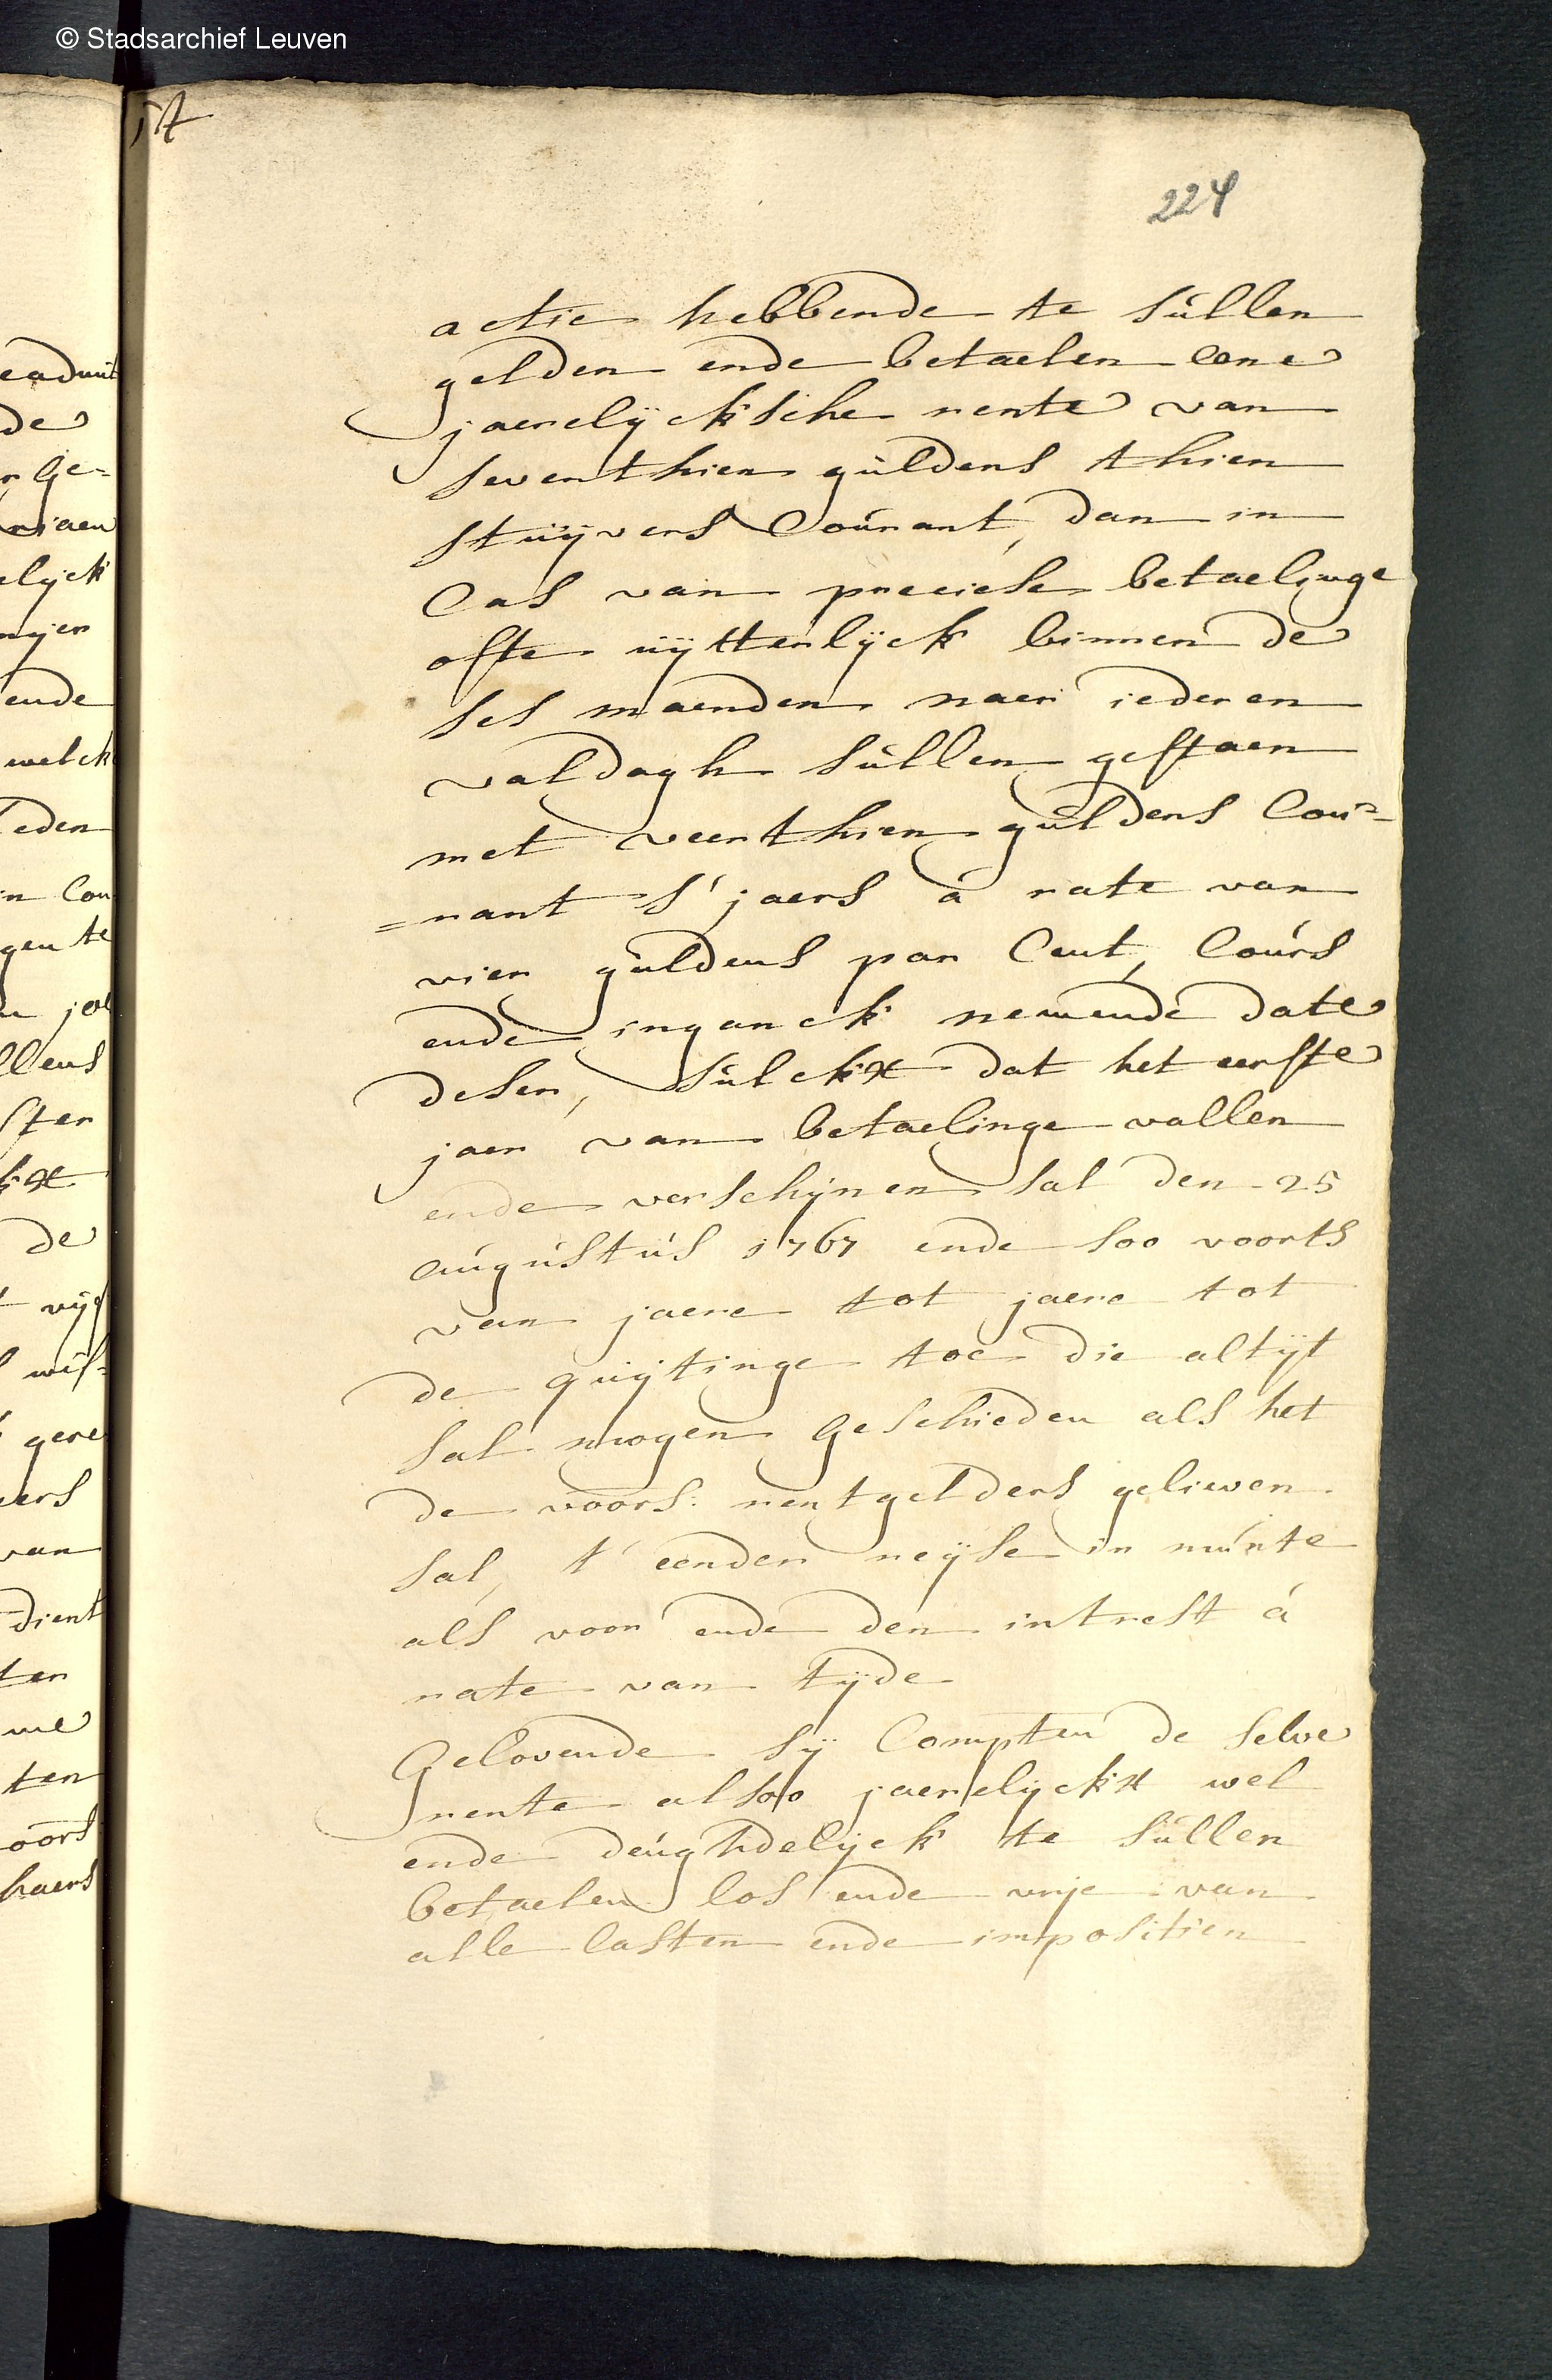 © Stadsarchief Leuven
224
actie hebbende te sullen
gelden ende betaelen eene
jaerelijcksche rente van
seventhien guldens thien
stuijvers Courant, dan in
Cas van preciese betaelinge
ofte uijtterlijck binnen de
ses maenden naer iederen
valdagh sullen gestaen
met veerthien guldens Cou=
=rant s'jaers à rate van
vier guldens par Cent, Cours
ende inganck nemende date
deser, sulckx dat het eerste
jaer van betaelinge vallen
ende verschijnen sal den 25
augustus 1767 ende soo voorts
van jaere tot jaere tot
de quijtinge toe die altijt
sal mogen geschieden als het
de voors: rentgelders gelieven
sal, t'eender reijse in munte
als voor ende den intrest à
rate van tijde
Gelovende sij Compten de selve
rente alsoo jaerelijckx wel
ende deughdelijck te sullen
betaelen los ende vrije van
alle lasten ende impositien
eadunt
de
r ge=
riaen
elijck
ende
welck
eden
in Cou
gen te
llens
ster
kx
de
vijf
gere
eers
van
dient
ten
me
ten
oors
haers